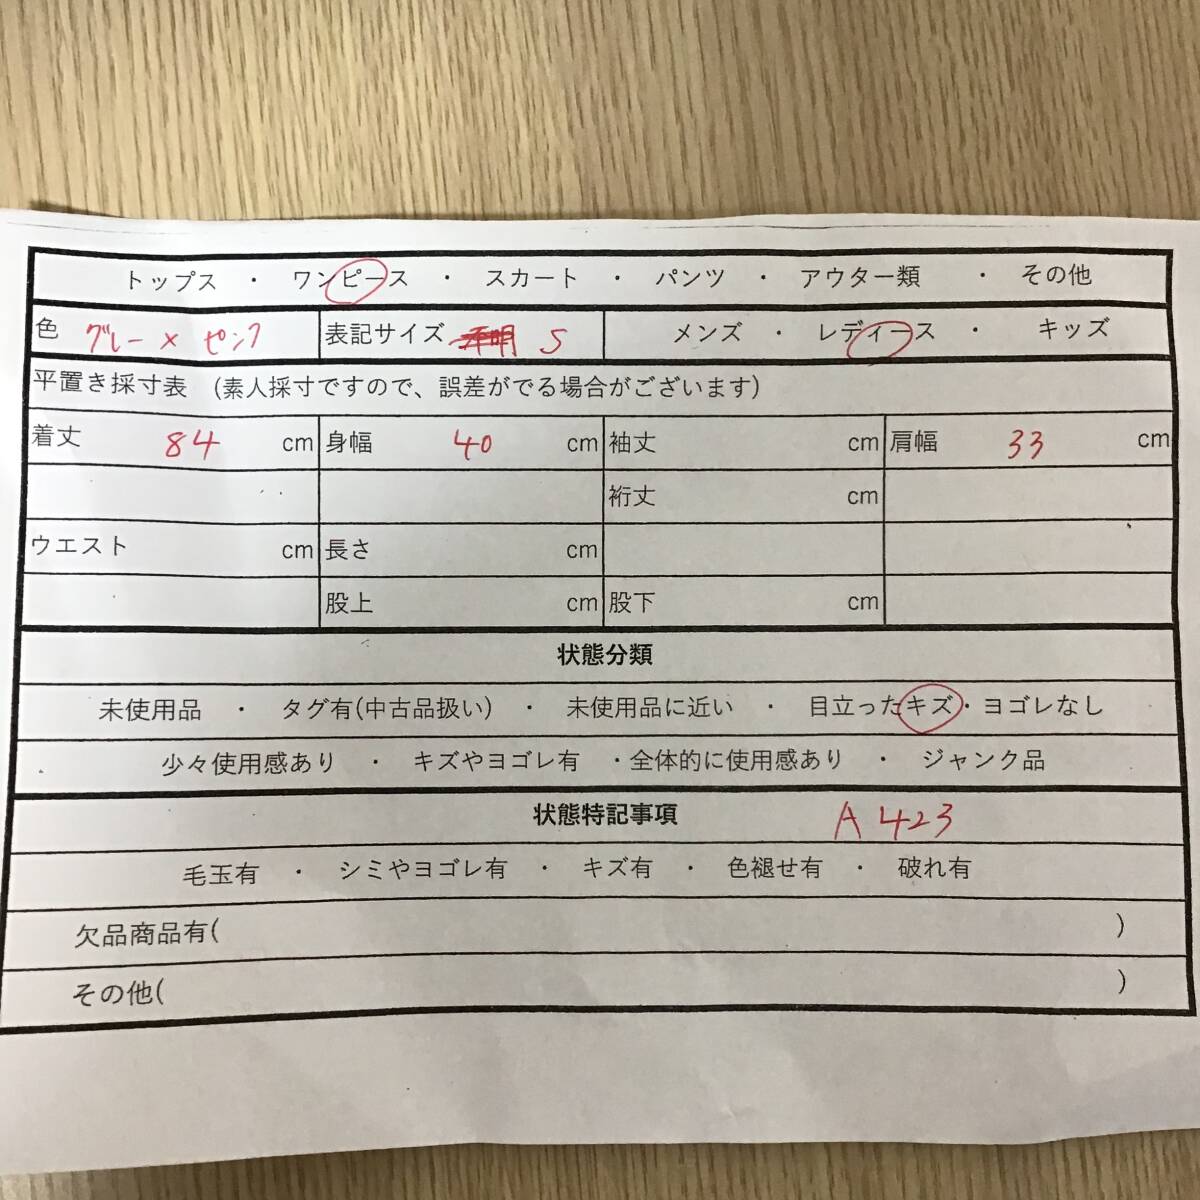 トップス ・ ワンピース ・ スカート ・ パンツ ・ アウター類 ・ その他
色 グレー×ピンク 表記サイズ 不明 S メンズ ・ レディース ・ キッズ
平置き採寸表 (素人採寸ですので、誤差がでる場合がございます)
着丈 84 cm 身幅 40 cm 袖丈 cm 肩幅 33 cm
裄丈 cm
ウエスト cm 長さ cm
股上 cm 股下 cm
状態分類
未使用品 ・ タグ有(中古品扱い) ・ 未使用品に近い ・ 目立ったキズ・ヨゴレなし
少々使用感あり ・ キズやヨゴレ有 ・全体的に使用感あり ・ ジャンク品
状態特記事項 A423
毛玉有 ・ シミやヨゴレ有 ・ キズ有 ・ 色褪せ有 ・ 破れ有
欠品商品有( )
その他( )